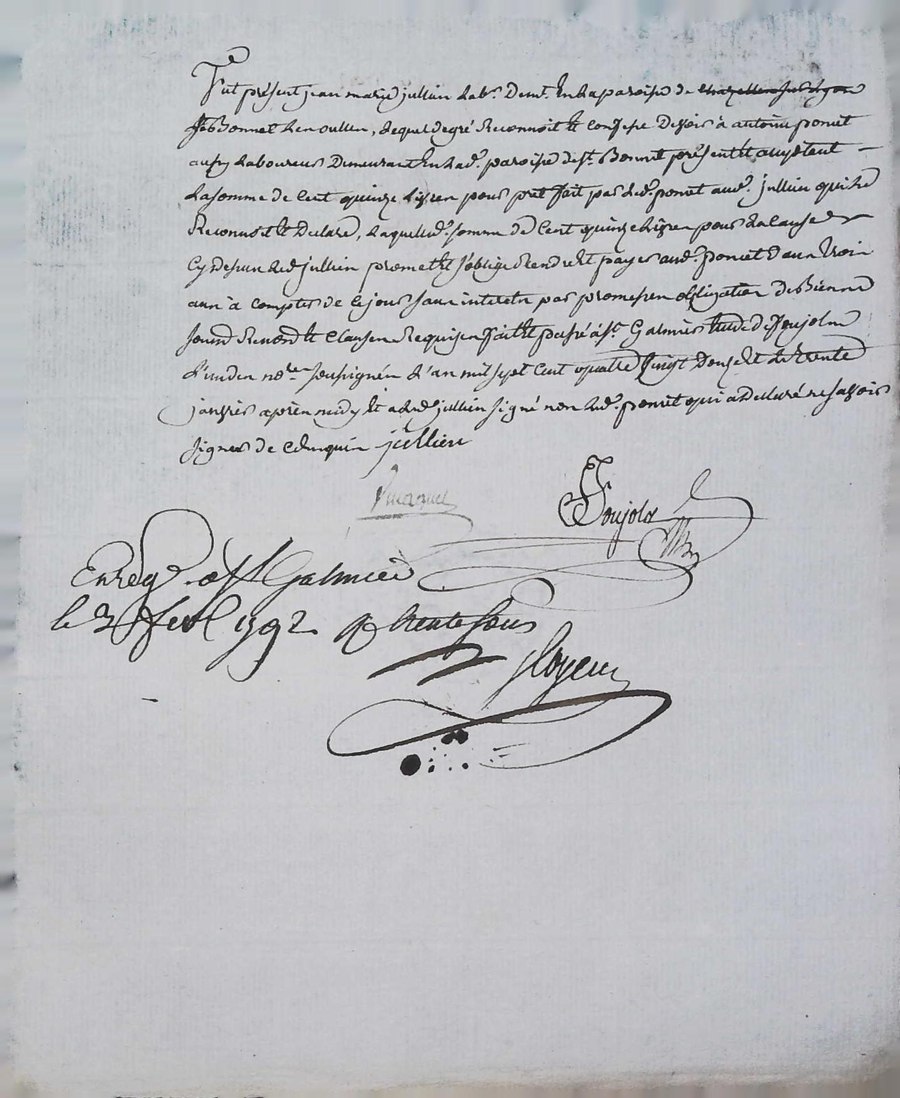 Fut présent jean marie jullien lab.r demt. En la paroisse de chazelles sur lyon
St Bonnet les oulles, lequel de gré Reconnoit Et Confesse Devoir à antoine poncet
aussy Laboureur Demeurant En lad.e paroisse de St. Bonnet présent Et acceptant
La somme de Cent quinze Livres pour prêt fait par led. poncet aud. jullien qui le
Reconnoit Et Declare, laquelle d. somme de Cent quinze Livres pour la cause
Cy dessus led. jullien promet Et s'oblige Rendre Et payer aud. poncet dans trois
ans à Compter de Ce jour sans interets par promesses obligation de Biens
soumd. Renond. Et Clauses Requises fait Et passé à St. Galmier Etude de Soujolx
L'un des nores. soussignés L'an mil sept Cent quatre vingt Douze Et le trente
janvier après midy Et a led. jullien signé non led. poncet qui a déclaré ne savoir
signer de Ce Enquis jullien
Soujolx
Enreg. à St Galmier
le 3 fev. 1792 R trente sous